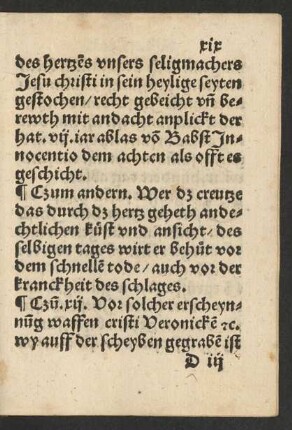 xix
des hertzēs vnsers seligmachers
Jesu christi in sein heylige seyten
gestochen/ recht gebeicht vñ be-
rewth mit andacht anplickt der
hat. vij. iar ablas vō Babst In-
nocentio dem achten als offt es
geschicht.
¶ Czum andern. Wer dz creutze
das durch dz hertz geheth ande-
chtlichen küst vnd ansicht/ des
selbigen tages wirt er behüt vor
dem schnellē tode/ auch vor der
kranckheit des schlages.
¶ Czū. xij. Vor solcher erscheyn-
nūg waffen cristi Veronickē ꝛc.
wy auff der scheyben gegrabē ist
D iij